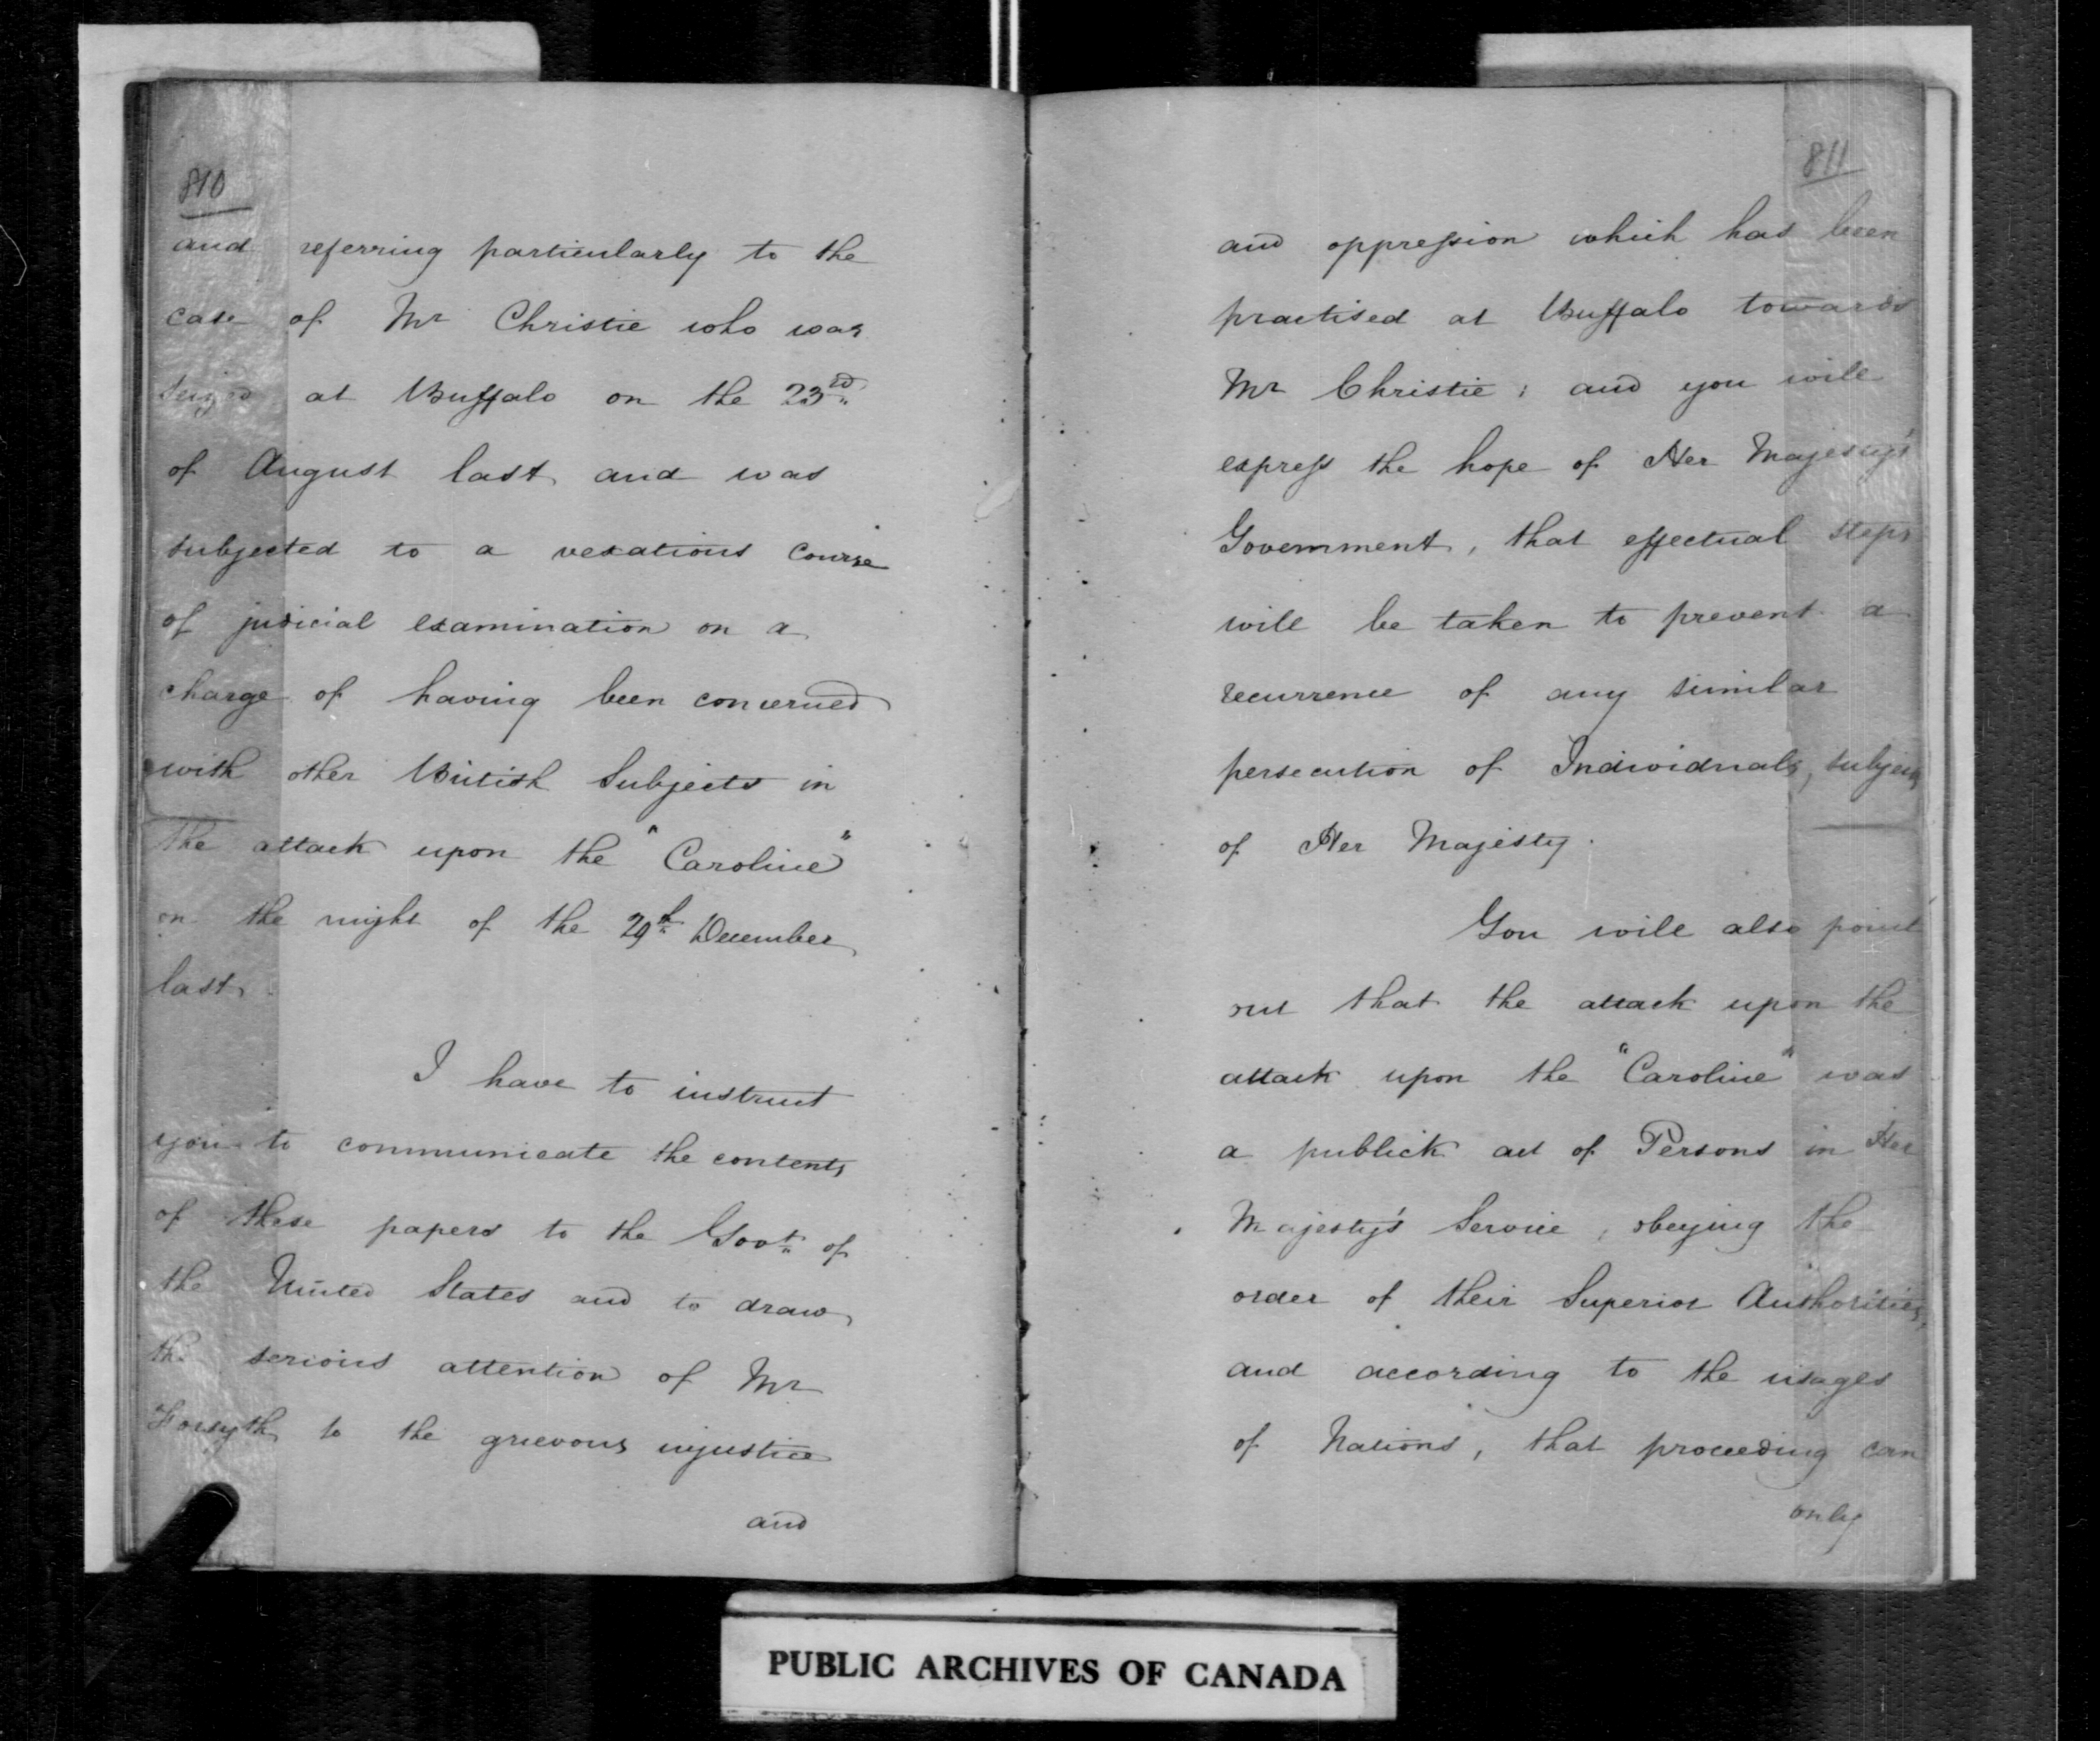 810
and referring particularly to the
case of Mr Christie who was
seized at Buffalo on the 23rd
of August last and was
subjected to a vexatious course
of judicial examination on a
charge of having been concerned
with other British Subjects in
the attack upon the "Caroline"
on the night of the 29th December
last.
I have to instruct
you to communicate the contents
of these papers to the Govt of
the United States and to draw
the serious attention of Mr
Forsyth to the grievous injustice
and
811
and oppression which has been
practised at Buffalo towards
Mr Christie; and you will
express the hope of Her Majesty's
Government, that effectual steps
will be taken to prevent a
recurrence of any similar
persecution of Individuals, subjects
of Her Majesty.
You will also point
out that the attack upon the
attack upon the "Caroline" was
a publick act of Persons in Her
Majesty's Service, obeying the
order of their Superior Authorities,
and according to the usages
of Nations, that proceeding can
only
PUBLIC ARCHIVES OF CANADA